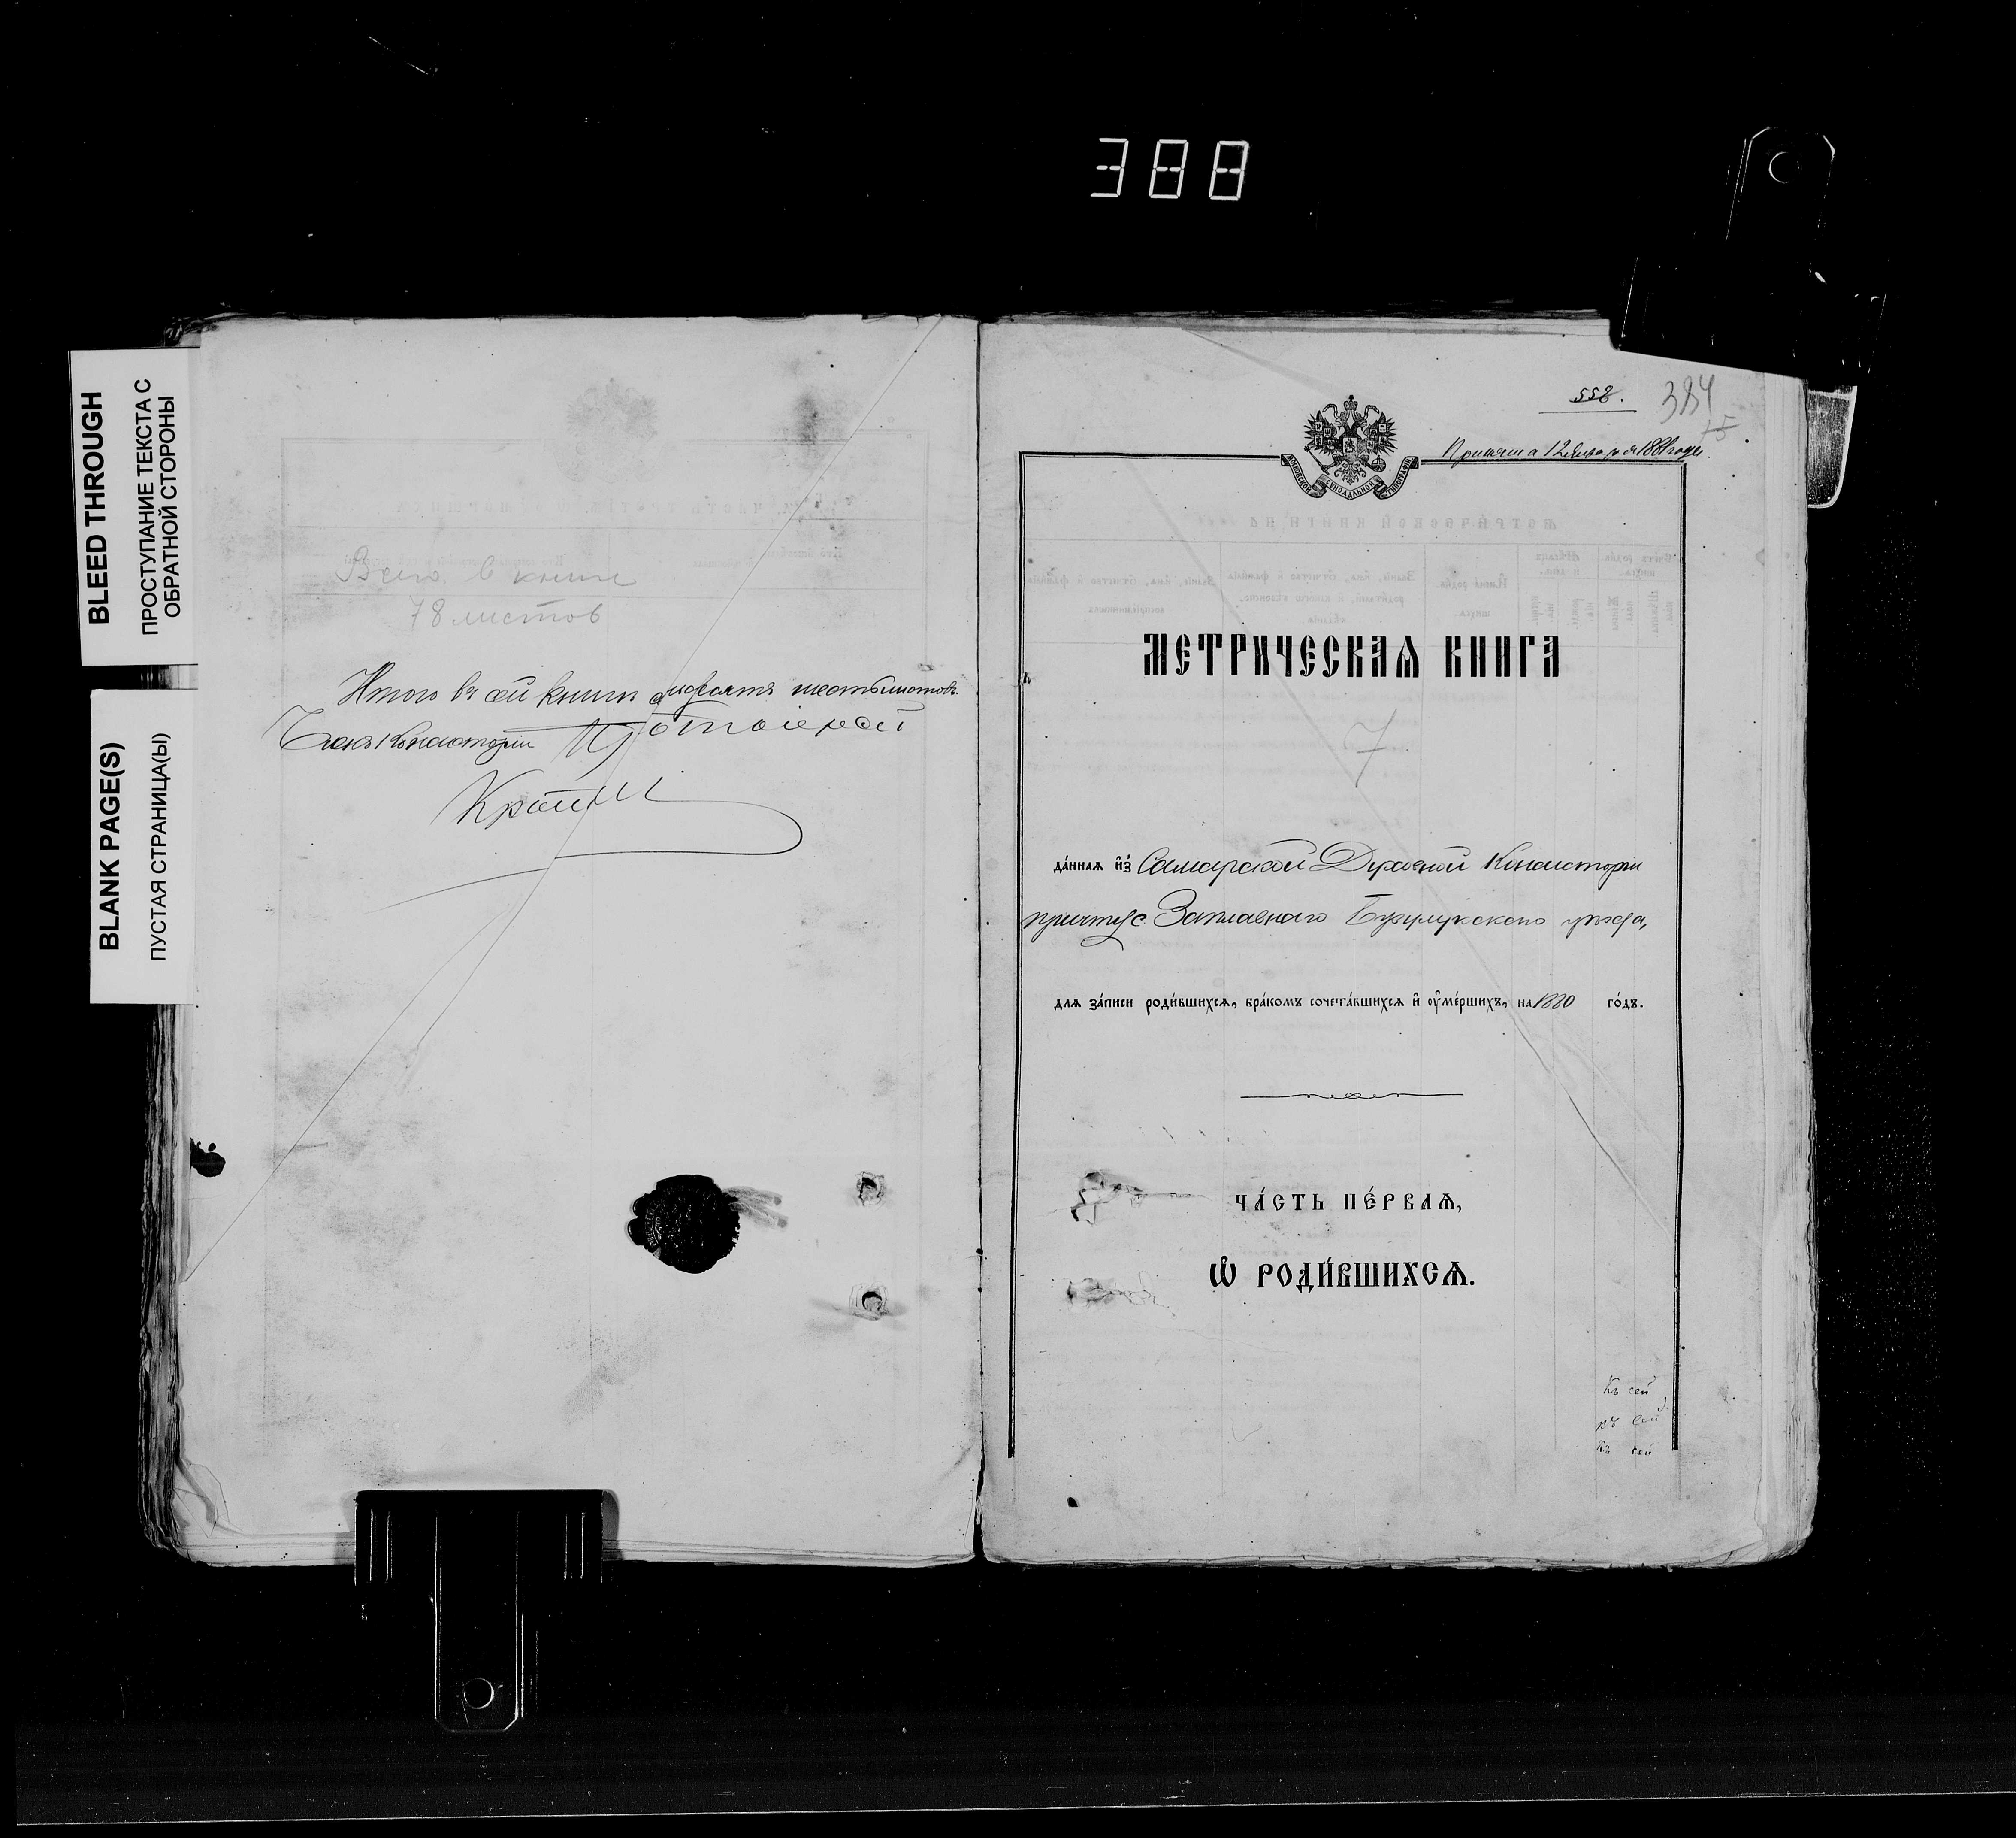 388
BLEED THROUGH
ПРОСТУПАНИЕ ТЕКСТА С
ОБРАТНОЙ СТОРОНЫ
BLANK PAGE(S)
ПУСТАЯ СТРАНИЦА(Ы)
Всего в книге
78 листов
Итого въ сей книгѣ девяти шесть листовъ.
Членъ Консисторіи Протоіерей
558.
384
Принята 12 Января 1881 года.
МОСКОВСКОЙ СУНОДАЛЬНОЙ ТИПОГРАФІИ
МЕТРИЧЕСКАѦ КНИГА
7
да́ннаѧ и҆з̾ Самарской Духовной Консисторіи
причту с. Заплавнаго Бузулукского уѣзда,
длѧ за́писи роди́вшихсѧ, бра́комъ сочета́вшихсѧ и҆ ᲂу҆ме́ршихъ, на 1880 го́дъ.
ЧА́СТЬ ПЕ́РВАѦ,
Ѽ РОДИ́ВШИХСѦ.
Къ сей
къ сей
къ сей